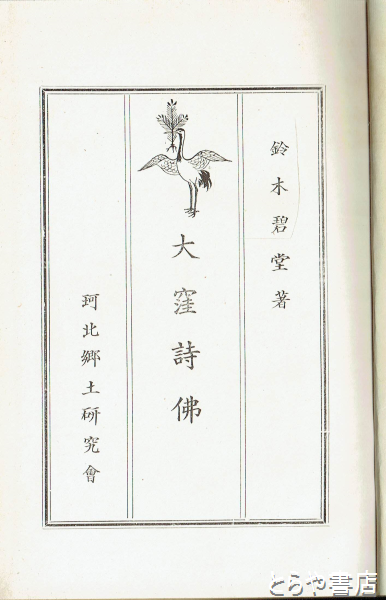 鈴木碧堂著
大窪詩佛
珂北郷土研究會
とらや書店